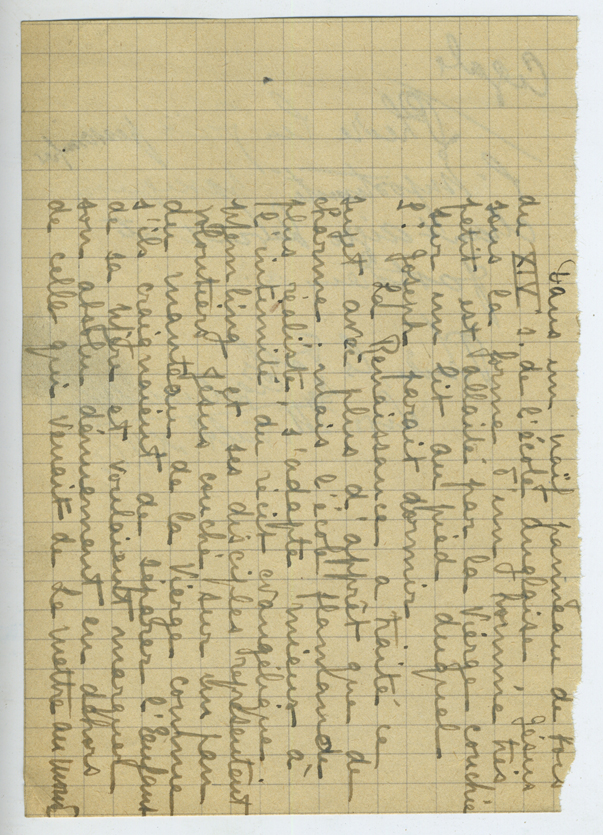 Dans un naïf panneau de bois
du XIVe s. de l'école anglaise, Jésus
sous la forme d'un homme très
petit est allaité par la Vierge couchée
sur un lit au pied duquel
St Joseph parait dormir.
La Renaissance a traité ce
sujet avec plus d'apprêt que de
charme ; mais l'école flamande
plus réaliste, s'adapte mieux à
l'intimité du récit évangélique.
Memling et ses disciples représentent
plutiers Jésus couché sur un pan
du manteau de la Vierge comme
s'ils craignaient de séparer l'Enfant
de sa Mère et voulaient marquer
son absolu dénuement en dehors
de celle qui venait de Le mettre au monde